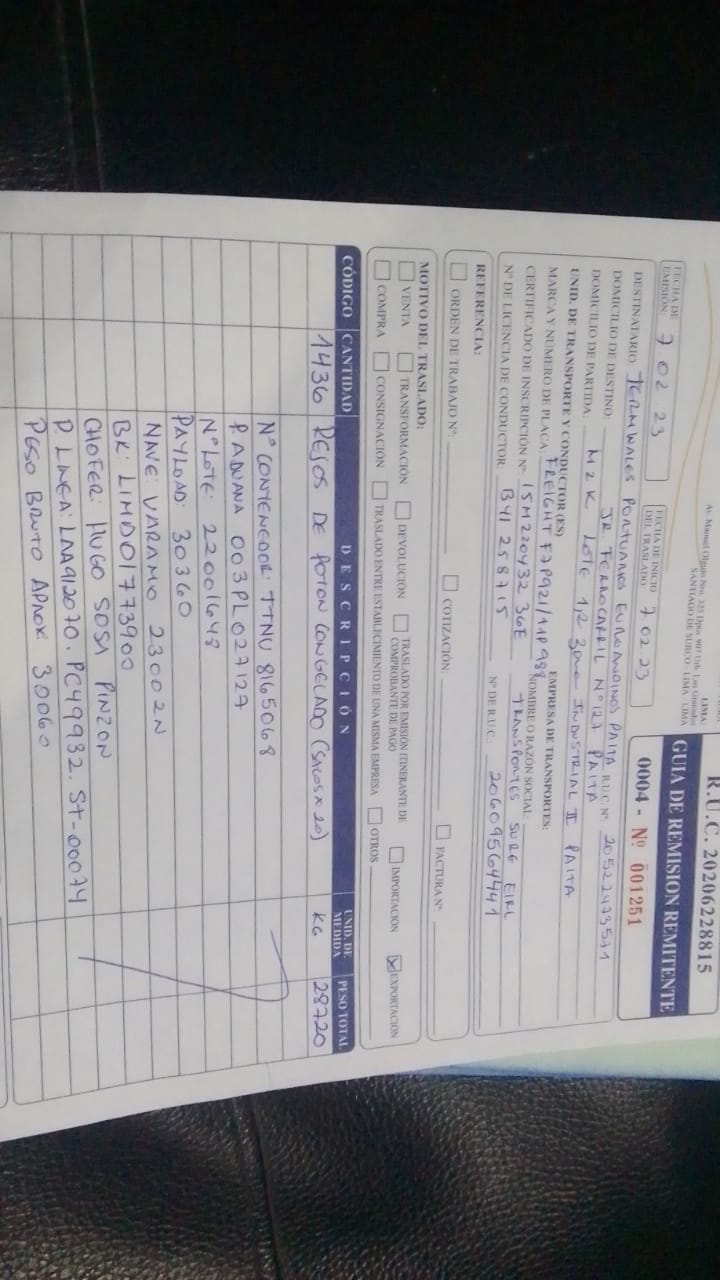 R.U.C. 20206228815
GUIA DE REMISION REMITENTE
0004 - Nº 001251
Av. Manuel Olguin Nro. 325 Dpto. 907 Urb. Los Granados
SANTIAGO DE SURCO - LIMA - LIMA
LIMA:
FECHA DE EMISIÓN: 7 02 23
FECHA DE INICIO DEL TRASLADO: 7 02 23
DESTINATARIO: TERMINALES PORTUARIOS EUROANDINOS PAITA R.U.C. Nº 20522473571
DOMICILIO DE DESTINO: JR. FERROCARRIL Nº 127 PAITA
DOMICILIO DE PARTIDA: MZ K LOTE 1,2 ZONA INDUSTRIAL II PAITA
UNID. DE TRANSPORTE Y CONDUCTOR (ES)
EMPRESA DE TRANSPORTES:
MARCA Y NUMERO DE PLACA: FREIGHT F7P921/11P988
NOMBRE O RAZÓN SOCIAL:
CERTIFICADO DE INSCRIPCIÓN Nº 15M220432 36E TRANSPORTES SURG EIRL
Nº DE LICENCIA DE CONDUCTOR: B41 258715 Nº DE R.U.C.: 20609564441
REFERENCIA:
ORDEN DE TRABAJO Nº: COTIZACIÓN: FACTURA Nº
MOTIVO DEL TRASLADO:
VENTA TRANSFORMACIÓN DEVOLUCIÓN TRASLADO POR EMISIÓN ITINERANTE DE COMPROBANTE DE PAGO IMPORTACIÓN X EXPORTACIÓN
COMPRA CONSIGNACIÓN TRASLADO ENTRE ESTABLECIMIENTO DE UNA MISMA EMPRESA OTROS
CÓDIGO CANTIDAD DESCRIPCIÓN UNID. DE MEDIDA PESO TOTAL
1436 REJOS DE POTON CONGELADO (SACOS x 20) KG 28720
Nº CONTENEDOR: TTNU 8165068
P. ADUANA 003PL027127
Nº LOTE: 22001648
PAYLOAD: 30360
NAVE: VARAMO 23002N
BK: LIMD01773900
CHOFER: HUGO SOSA PINZON
P LINEA: LAA912070. PC49932. ST-00074
PESO BRUTO APROX: 30060